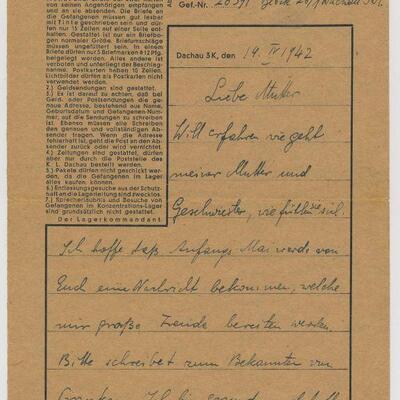 von seinen Angehörigen empfangen
und an sie absenden. Die Briefe an
die Gefangenen müssen gut lesbar
mit Tinte geschrieben sein und dür-
fen nur 15 Zeilen auf einer Seite ent-
halten. Gestattet ist nur ein Briefbo-
gen normaler Größe. Briefumschläge
müssen ungefüttert sein. In einem
Briefe dürfen nur 5 Briefmarken à 12 Pfg.
beigelegt werden. Alles andere ist
verboten und unterliegt der Beschlag-
nahme. Postkarten haben 10 Zeilen.
Lichtbilder dürfen als Postkarten nicht
verwendet werden.
2.) Geldsendungen sind gestattet.
3.) Es ist darauf zu achten, daß bei
Geld- oder Postsendungen die ge-
naue Adresse, bestehend aus Name,
Geburtsdatum und Gefangenen-Num-
mer, auf die Sendungen zu schreiben
ist. Ebenso müssen alle Schreiben
den genauen und vollständigen Ab-
sender tragen. Wenn die Adresse
fehlerhaft ist, geht die Post an den Ab-
sender zurück oder wird vernichtet.
4.) Zeitungen sind gestattet, dürfen
aber nur durch die Poststelle des
K. L. Dachau bestellt werden.
5.) Pakete dürfen nicht geschickt wer-
den, da die Gefangenen im Lager
alles kaufen können.
6.) Entlassungsgesuche aus der Schutz-
haft an die Lagerleitung sind zwecklos.
7.) Sprecherlaubnis und Besuche von
Gefangenen im Konzentrations-Lager
sind grundsätzlich nicht gestattet.
Der Lagerkommandant
Gef.-Nr.
Dachau 3K, den 19. IV 1942
Liebe Mutter
Will erfahren wie geht
meiner Mutter und
Geschwister, wie fühlen sie sich.
Ich hoffe daß Anfangs Mai werde von
Euch eine Nachricht bekommen, welche
mir große Freude bereiten werden.
Bitte schreibet zum Bekannten von